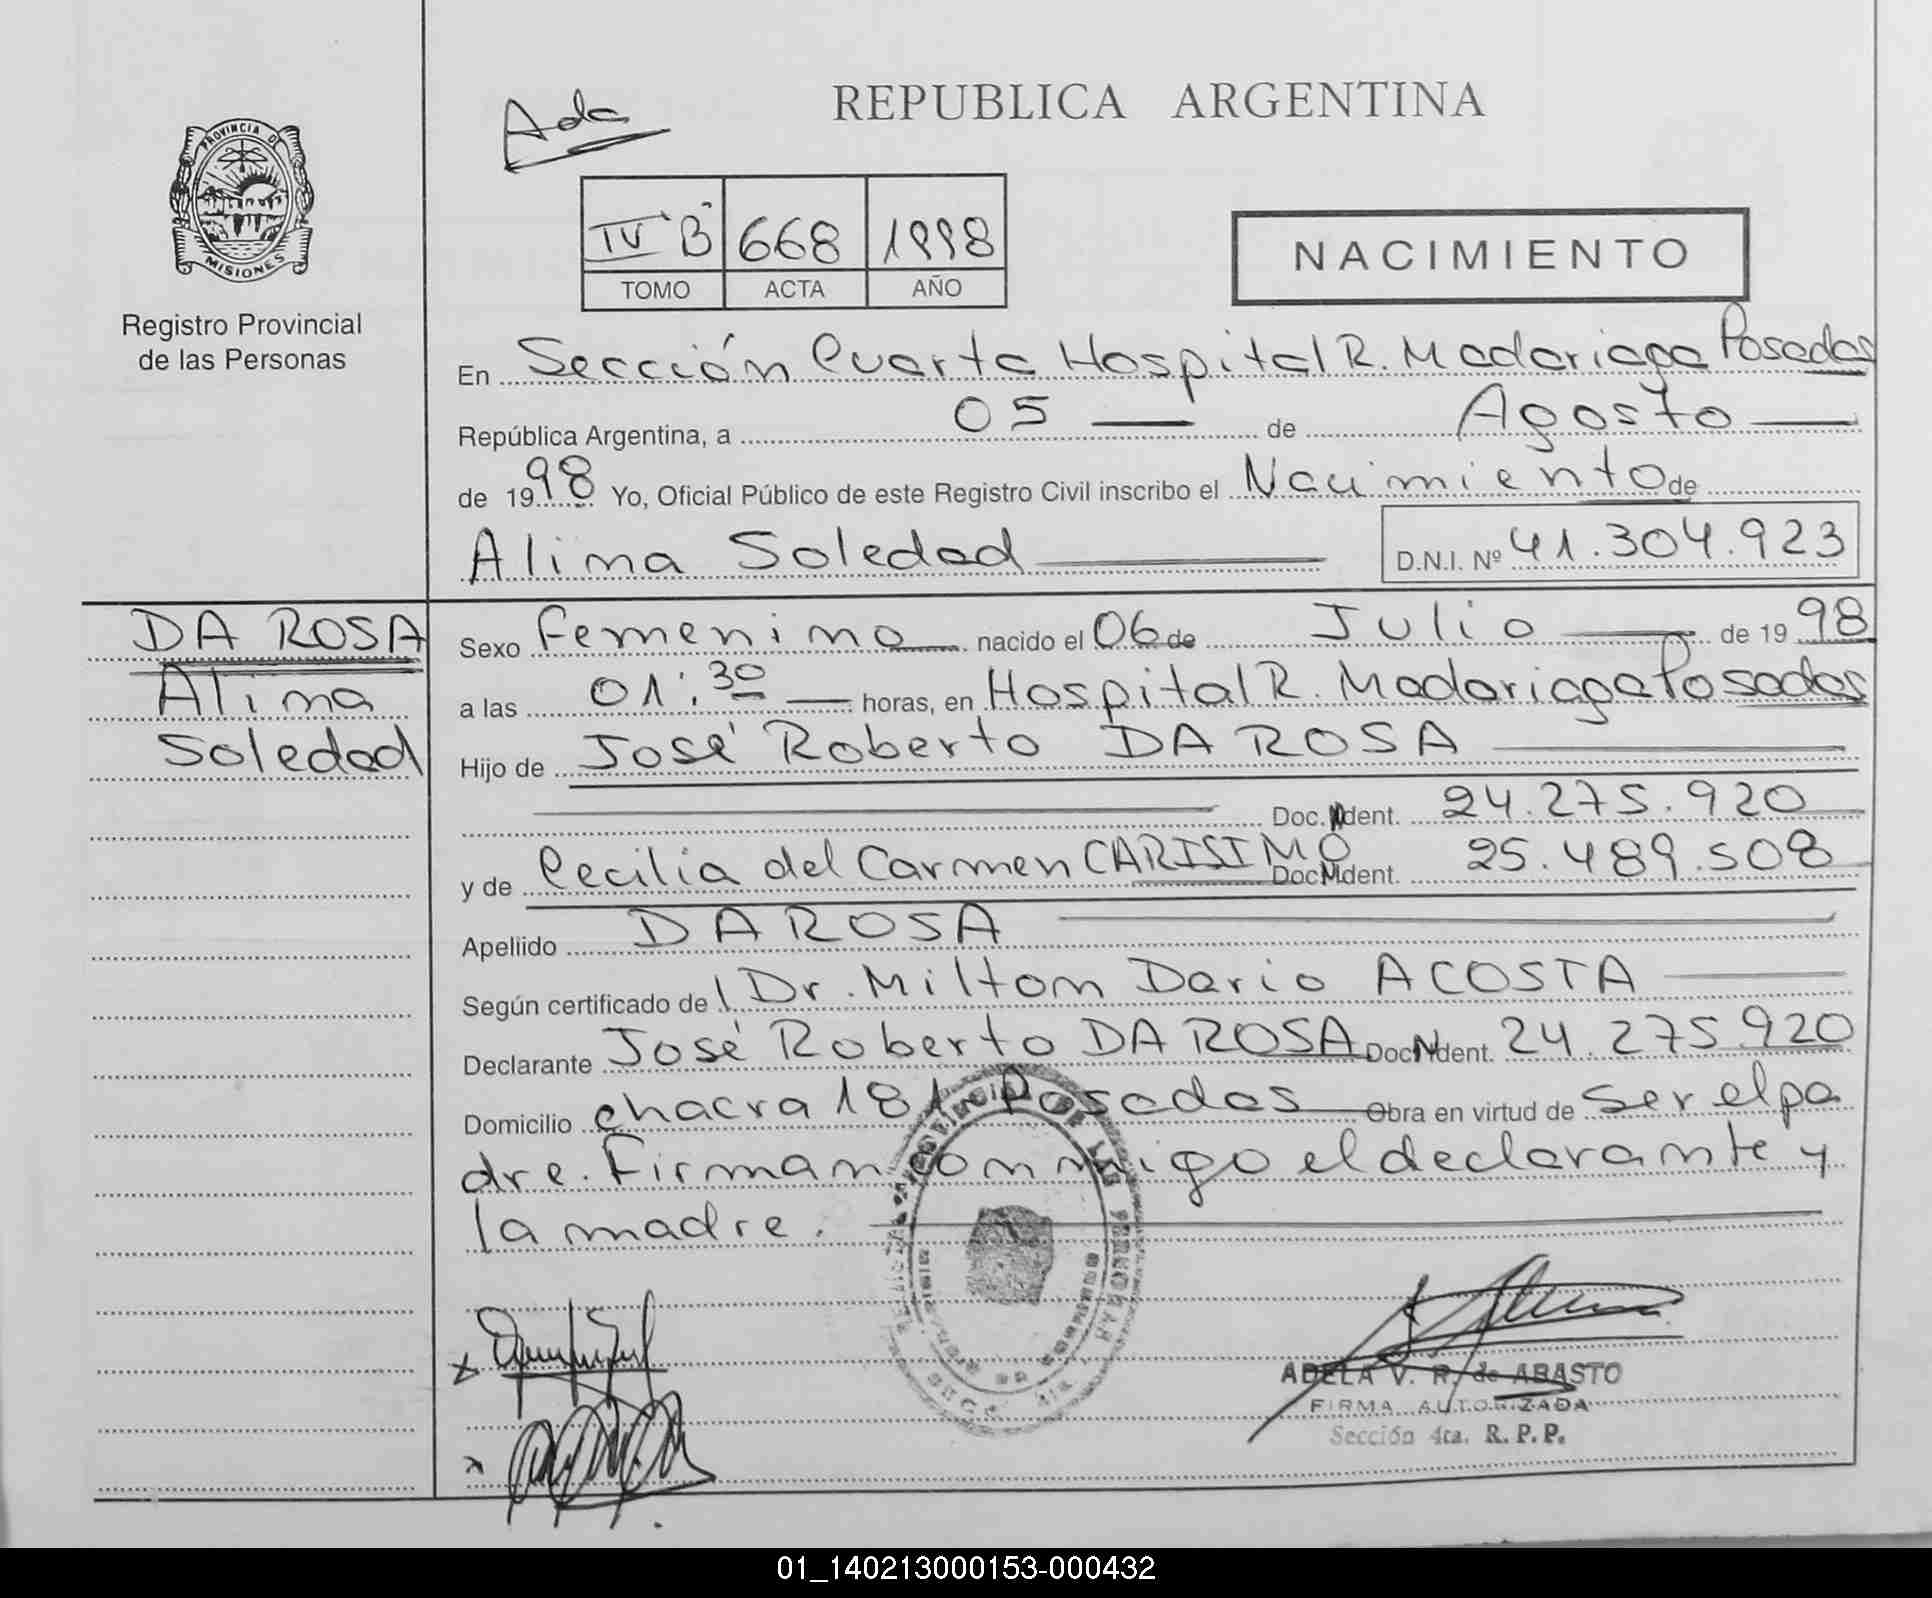 Ada
REPUBLICA ARGENTINA
PROVINCIA DE
MISIONES
Registro Provincial
de las Personas
IV "B" 668 1998
TOMO ACTA AÑO
NACIMIENTO
En Sección Cuarta Hospital R. Madariaga Posadas
República Argentina, a 05 — de Agosto —
de 1998 Yo, Oficial Público de este Registro Civil inscribo el Nacimiento de
Alima Soledad —
D.N.I. Nº 41.304.923
DA ROSA
Alima
Soledad
Sexo femenino — nacido el 06 de Julio — de 1998
a las 01:30 — horas, en Hospital R. Madariaga Posadas
Hijo de José Roberto DA ROSA —
— Doc. Ident. 24.275.920
y de Cecilia del Carmen CARISIMO Doc. Ident. 25.489.508
Apellido DA ROSA —
Según certificado de Dr. Milton Dario ACOSTA —
Declarante José Roberto DA ROSA Doc. Ident. 24.275.920
Domicilio chacra 181 Posadas — Obra en virtud de ser el pa
dre. Firman conmigo el declarante y
la madre. —
ADELA V. R. de ABASTO
FIRMA AUTORIZADA
Sección 4ta. R. P. P.
01_140213000153-000432